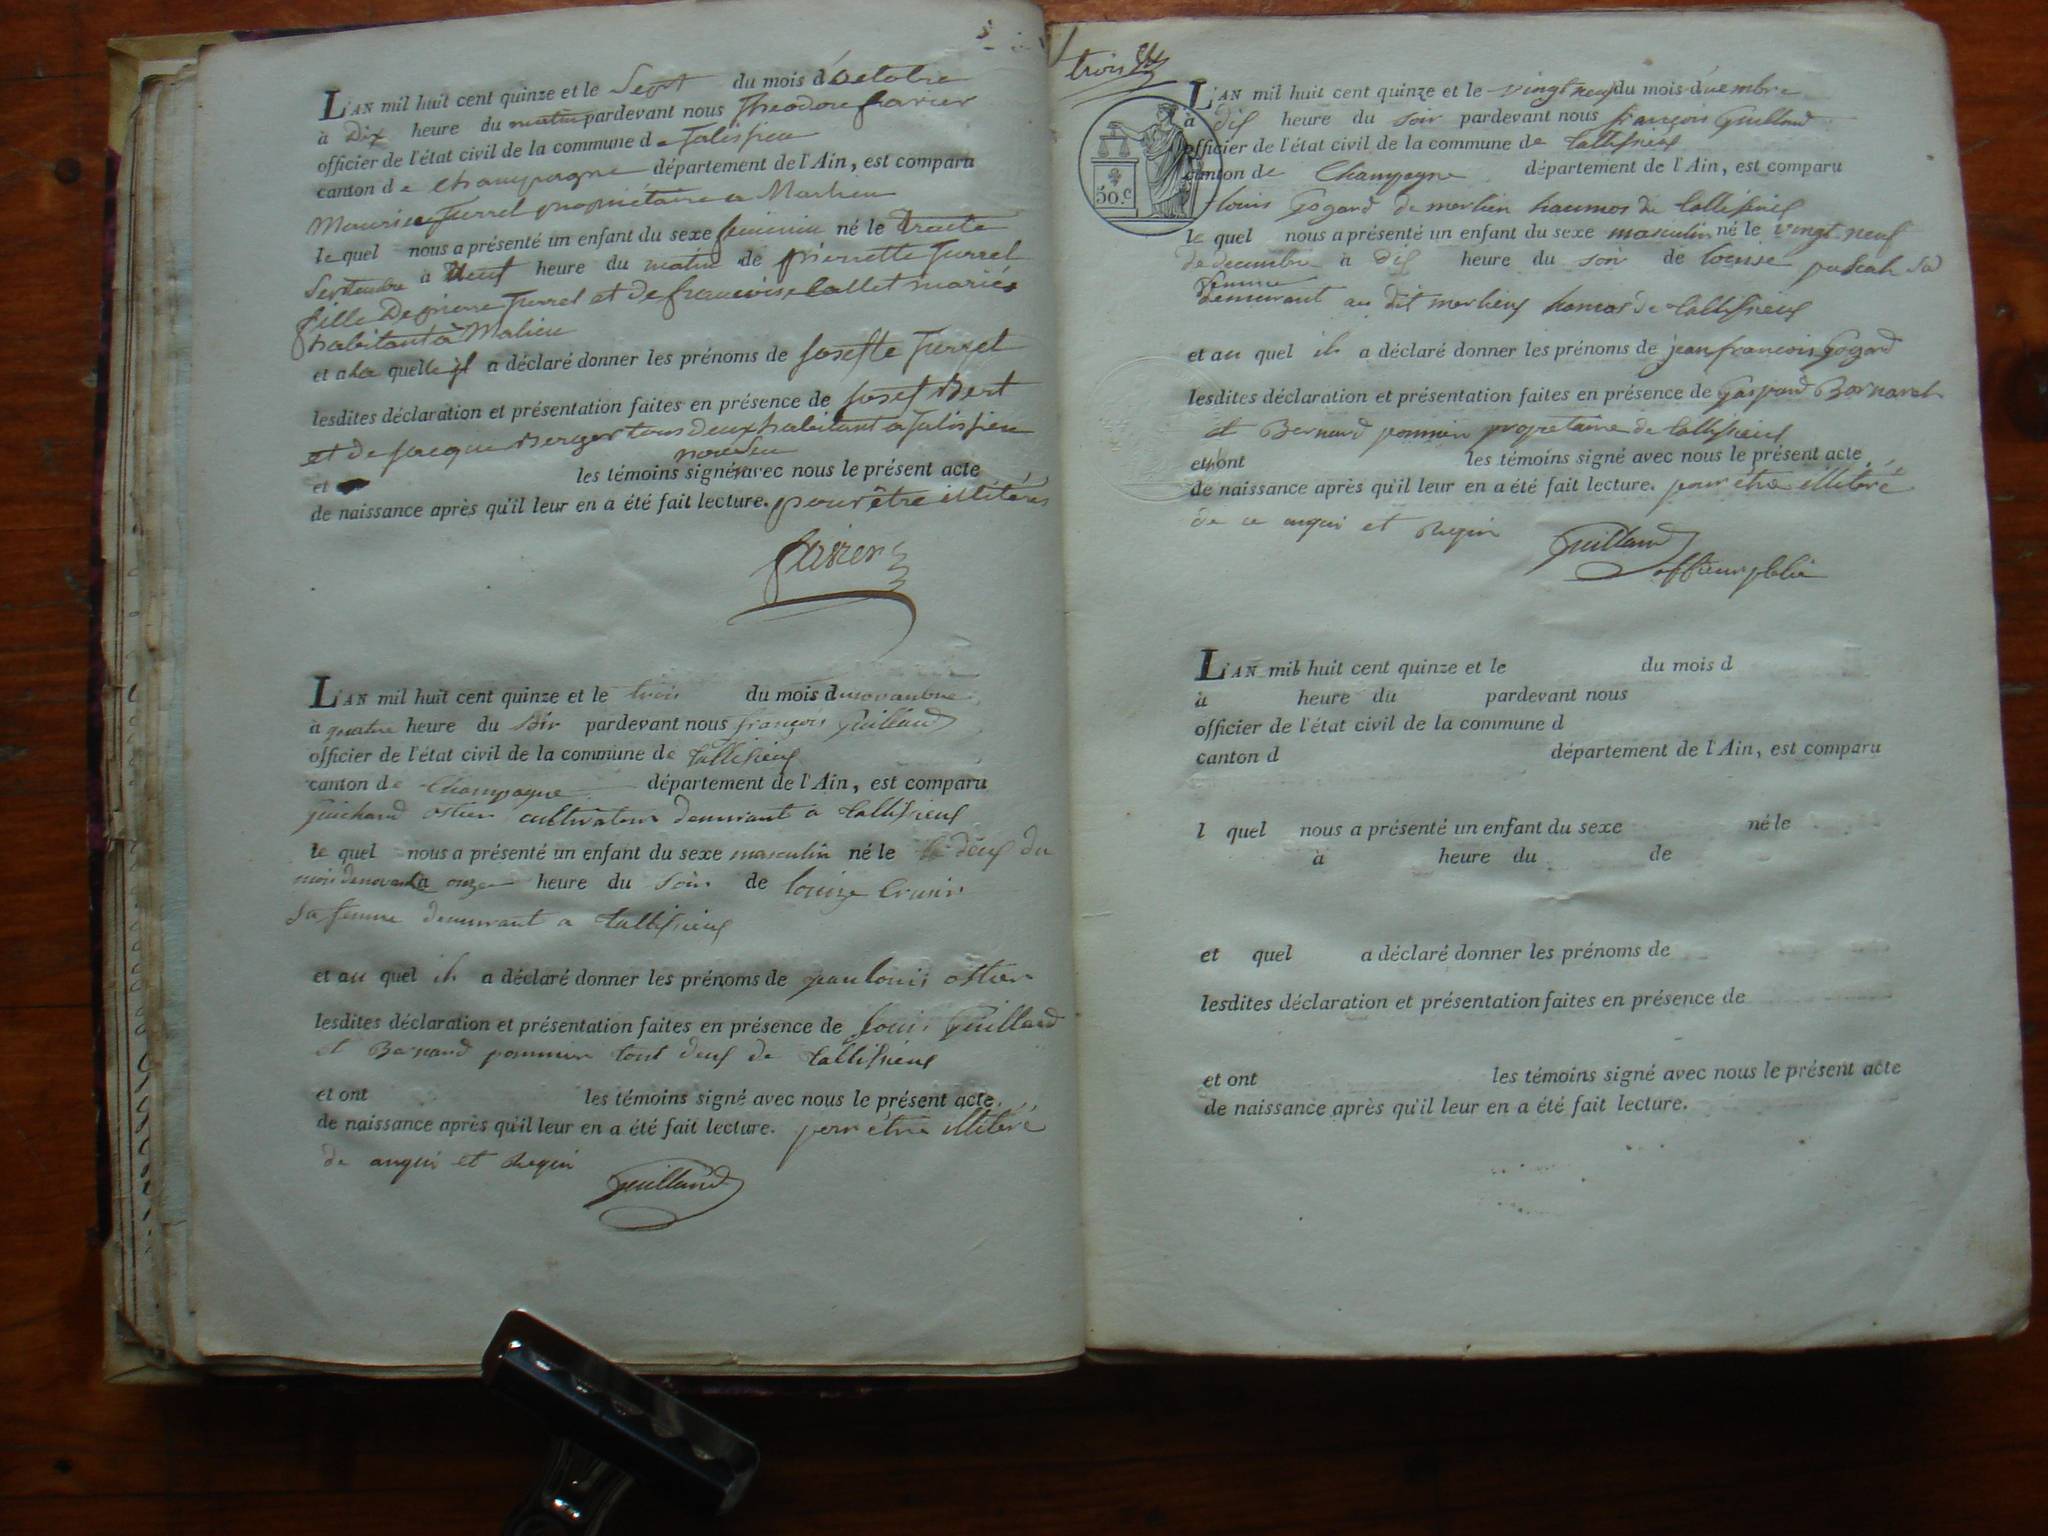 L'AN mil huit cent quinze et le Sept du mois d'octobre
à Dix heure du matin pardevant nous Theodore favier
officier de l'état civil de la commune de Talissieu
canton de Champagne département de l'Ain, est comparu
Maurice Turrel propriétaire a Marlieu
le quel nous a présenté un enfant du sexe feminin né le trente
Septembre à Neuf heure du matin de pierrette Turrel
fille De pierre Turrel et de francoise Callet mariés
habitant à Malieu
et a la quelle il a déclaré donner les prénoms de Josette Turrel
lesdites déclaration et présentation faites en présence de Josef Bert
et de Jacque Berger tous deux habitant a Talissieu
et les témoins signé avec nous le présent acte
de naissance après qu'il leur en a été fait lecture. pour être illitérés
favier
L'AN mil huit cent quinze et le trois du mois de novambre
à quatre heure du soir pardevant nous françois Guilland
officier de l'état civil de la commune de tallisieux
canton de Champagne département de l'Ain, est comparu
Guichard ostier cultivateur demurant a tallisieux
le quel nous a présenté un enfant du sexe masculin né le le deux du
mois de novambre à onze heure du soir de louize
sa femme demurant a tallisieux
et au quel il a déclaré donner les prénoms de jean louis ostier
lesdites déclaration et présentation faites en présence de louis Guilland
et Bernard pommier tout deux de tallisieux
et ont les témoins signé avec nous le présent acte
de naissance après qu'il leur en a été fait lecture. pour étre illitéré
de anquis et Requis
Guilland
trois
50.c
L'AN mil huit cent quinze et le vingt neuf du mois decembre
à dix heure du soir pardevant nous françois Guilland
officier de l'état civil de la commune de tallisieux
canton de Champagne département de l'Ain, est comparu
louis Gogard de merlieu haumos de tallisieux
le quel nous a présenté un enfant du sexe masculin né le vingt neuf
de decembre à dix heure du soir de louise pascal sa
femme
demurant au dit merlieux homos de tallisieux
et au quel il a déclaré donner les prénoms de jean francois Gogard
lesdites déclaration et présentation faites en présence de Gaspard Bornarel
et Bernard pommier propretaire de tallisieux
et ont les témoins signé avec nous le présent acte
de naissance après qu'il leur en a été fait lecture. pour étre illitéré
de ce anquis et Requis
Guilland
L'AN mil huit cent quinze et le du mois d
à heure du pardevant nous
officier de l'état civil de la commune d
canton d département de l'Ain, est comparu
l quel nous a présenté un enfant du sexe né le
à heure du de
et quel a déclaré donner les prénoms de
lesdites déclaration et présentation faites en présence de
et ont les témoins signé avec nous le présent acte
de naissance après qu'il leur en a été fait lecture.